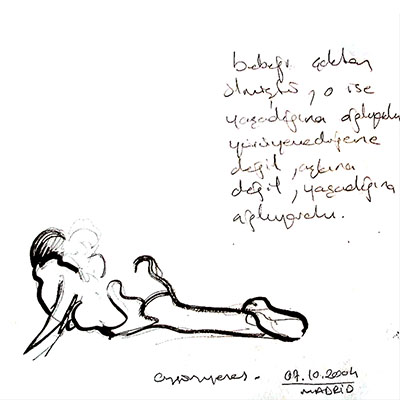 bebeği çoktan
ölmüştü, o ise
yaşadığına ağlıyordu
yürüyemediğine
değil,
değil, yaşadığına
ağlıyordu.
07.10.2004
MADRID